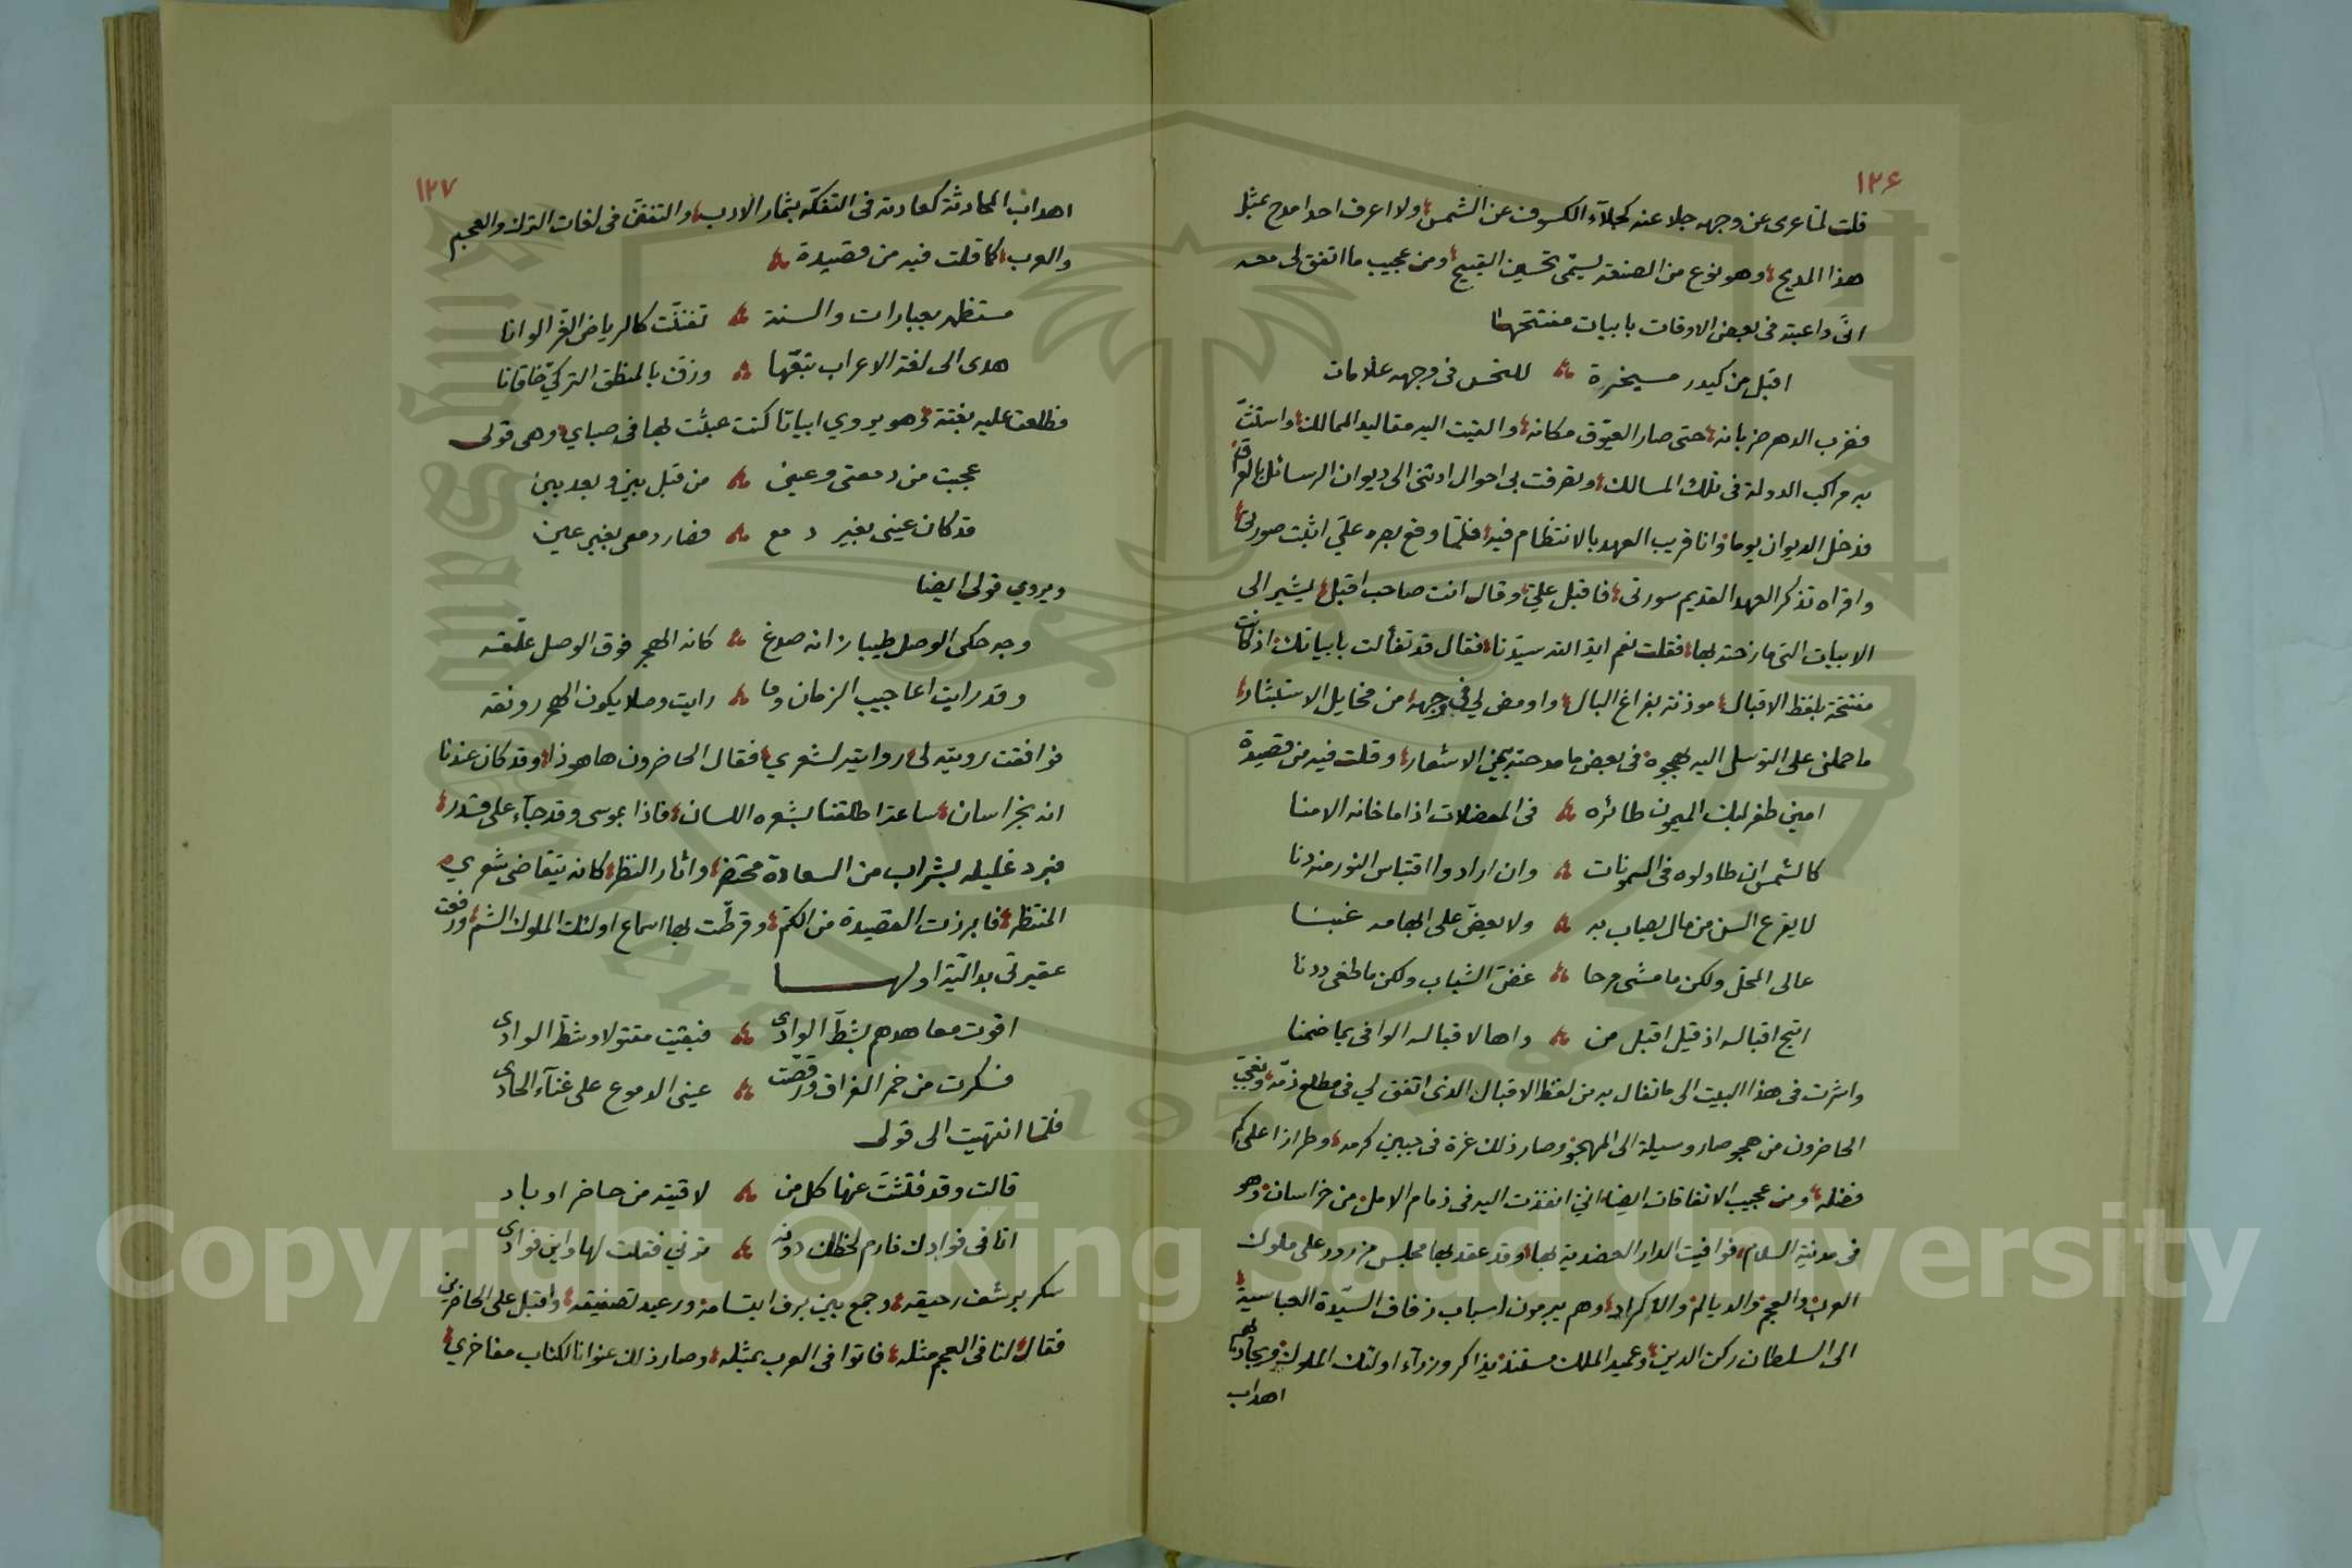 ١٢٦
قلت لما عرى عن وجهه جلا عنه كجلآء الكسوف عن الشمس ولا اعرف احدا مدح بمثل
هذا المديح وهو نوع من الصنعة يسمّى تحسين القبيح ومن عجيب ما اتفق لى معه
انّى داعبته فى بعض الاوقات بابيات مفتتحها
اقبل من كيدر مسيخرة للنحس فى وجهه علامات
فضرب الدهر ضربانه حتى صار العيّوق مكانه والقيت اليه مقاليد الممالك واستتبّ
به مراكب الدولة فى تلك المسالك وتصرفت بى احوال ادتنى الى ديوان الرسائل بالعراق
فدخل الديوان يوما وانا قريب العهد بالانتظام فيه فلمّا وقع بصره علىّ اثبت صورتى
وافراه تذكر العهد القديم سورتى فاقبل علىّ وقال انت صاحب اقبل يشير الى
الابيات التى مازحته بها فقلت نعم ايد الله سيّدنا فقال قد تفألت بابياتك اذ كانت
مفتتحة بلفظ الاقبال موذنة بفراغ البال واومض لي فى وجهه من مخايل الاستبشار
ما حملنى على التوسل اليه بهجوه فى بعض ما مدحته من الاشعار وقلت فيه من قصيدة
امين طغرلبك الميمون طائره فى المعضلات اذا ما خانه الامنا
كالشمس ان طاولوه فى السموّ نات وان ارادوا اقتباس النور منه دنا
لا يقرع السن من مال يصاب به ولا يعضّ على ابهامه غبنا
عالى المحلّ ولكن ما مشى مرحا غضّ الشباب ولكن ما طغى ددنا
انتج اقباله اذ قيل اقبل من واها لاقباله الوافى بما ضمنا
واشرت فى هذا البيت الى ما تفال به من لفظ الاقبال الذى اتفق لي فى مطلع ذمّه وتعجّب
الحاضرون من هجو صار وسيلة الى المهجوّ وصار ذلك غرة فى جبين كرمه وطرازا على كم
فضله ومن عجيب الاتفاقات ايضا انى انفذت اليه فى زمام الامل من خراسان وهو
فى مدينة السلام فوافيت الدار العضدية بها وقد عقد بها مجلس مزرور على ملوك
العرب والعجم والديالم والاكراد وهم يبرمون اسباب زفاف السيّدة العباسية
الى السلطان ركن الدين وعميد الملك مستند يذاكر وزرآء اولئك الملوك ويجاذبهم
اهداب
١٢٧
اهداب المحادثة كعادته فى التفكّه بثمار الادب والتفنّن فى لغات الترك والعجم
والعرب كما قلت فيه من قصيدة
مستظهر بعبارات والسنة تفننّت كالرياض الغرّ الوانا
هدى الى لغة الاعراب تبّعها وزفّ بالمنطق التركيّ خاقانا
فطلعت عليه بغتة وهو يروي ابياتا كنت عبثت بها فى صباي وهى قولى
عجبت من دمعتى وعينى من قبل بين وبعد بين
قد كان عينى بغير دمع فصار دمعى بغير عين
ويروي قولى ايضا
وجه حكى الوصل طيبا زانه صدغ كانه الهجر فوق الوصل علّقه
وقد رايت اعاجيب الزمان وما رايت وصلا يكون الهجر رونقه
فوافقت رويته لى روايته لشعري فقال الحاضرون ها هو ذا وقد كان عندنا
انه بخراسان ساعة اطلقنا بشعره اللسان فاذا بموسى وقد جآء على قدر
فبرد غليله بشراب من السعادة محتضر واثار النظر كانه يتقاضى شعري
المنتظر فابرزت القصيدة من الكم وقرطت بها اسماع اولئك الملوك الشم ورفعت
عقيرتى بداليّة اولها
اقوت معاهدهم بشطّ الوادى فبقيت مقتولا وشطّ الوادى
فسكرت من خمر الفراق ورقّصت عينى الدموع على غنآء الحادى
فلمّا انتهيت الى قولى
قالت وقد فتّشت عنها كل من لاقيته من حاضر او باد
انا فى فوادك فارم لحظك دونه ترنى فقلت لها واين فوادى
سكر برشف رحيقه وجمع بين برق ابتسامه ورعيد تصفيقه واقبل على الحاضرين
فقال لنا فى العجم مثله فاتوا فى العرب بمثله وصار ذلك عنوانا لكتاب مفاخري
Copyright © King Saud University
1957